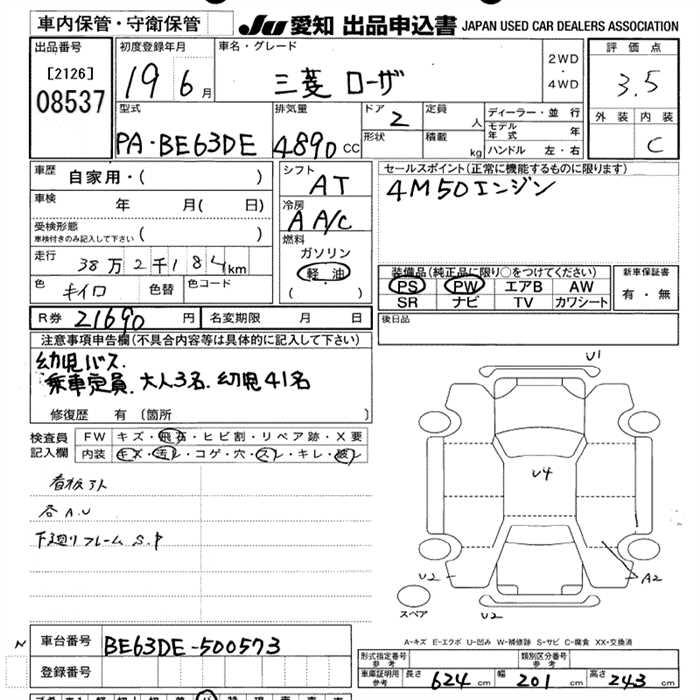 車内保管・守衛保管
JU 愛知 出品申込書 JAPAN USED CAR DEALERS ASSOCIATION
出品番号
[2126]
08537
初度登録年月
19 6月
車名・グレード
三菱 ローザ
2WD
・
4WD
評価点
3.5
外装 内装
C
型式
PA-BE63DE
排気量
4890 CC
ドア 2
形状
定員
人
積載
kg
ディーラー・並行
モデル年式 年
ハンドル 左・右
車歴
自家用・( )
車検
年 月( 日)
受検形態
車検付きのみ記入して下さい ( )
走行
38万2千184km
色
キイロ
色替
色コード
シフト
AT
冷房
A A/C
燃料
ガソリン
軽油
( )
セールスポイント(正常に機能するものに限ります)
4M50エンジン
装備品(純正品に限り○をつけてください)
PS PW エアB AW
SR ナビ TV カワシート
新車保証書
有・無
R券 21690 円
名変期限 月 日
後日品
注意事項申告欄(不具合内容等は具体的に記入して下さい)
幼児バス
乗車定員 大人3名 幼児41名
修復歴 有(箇所 )
検査員
記入欄
FW キズ・飛石・ヒビ割・リペア跡・X要
内装 キズ・汚レ・コゲ・穴・スレ・キレ・破レ
看板アト
各A.U
下廻りフレーム S.P
U1
U4
U2
A2
U2
スペア
A-キズ E-エクボ U-凹み W-補修跡 S-サビ C-腐食 XX-交換済
N
車台番号
BE63DE-500573
登録番号
形式指定番号
参考
類別区分番号
参考
車庫証明用
参考
長さ 624 cm
幅 201 cm
高さ 243 cm